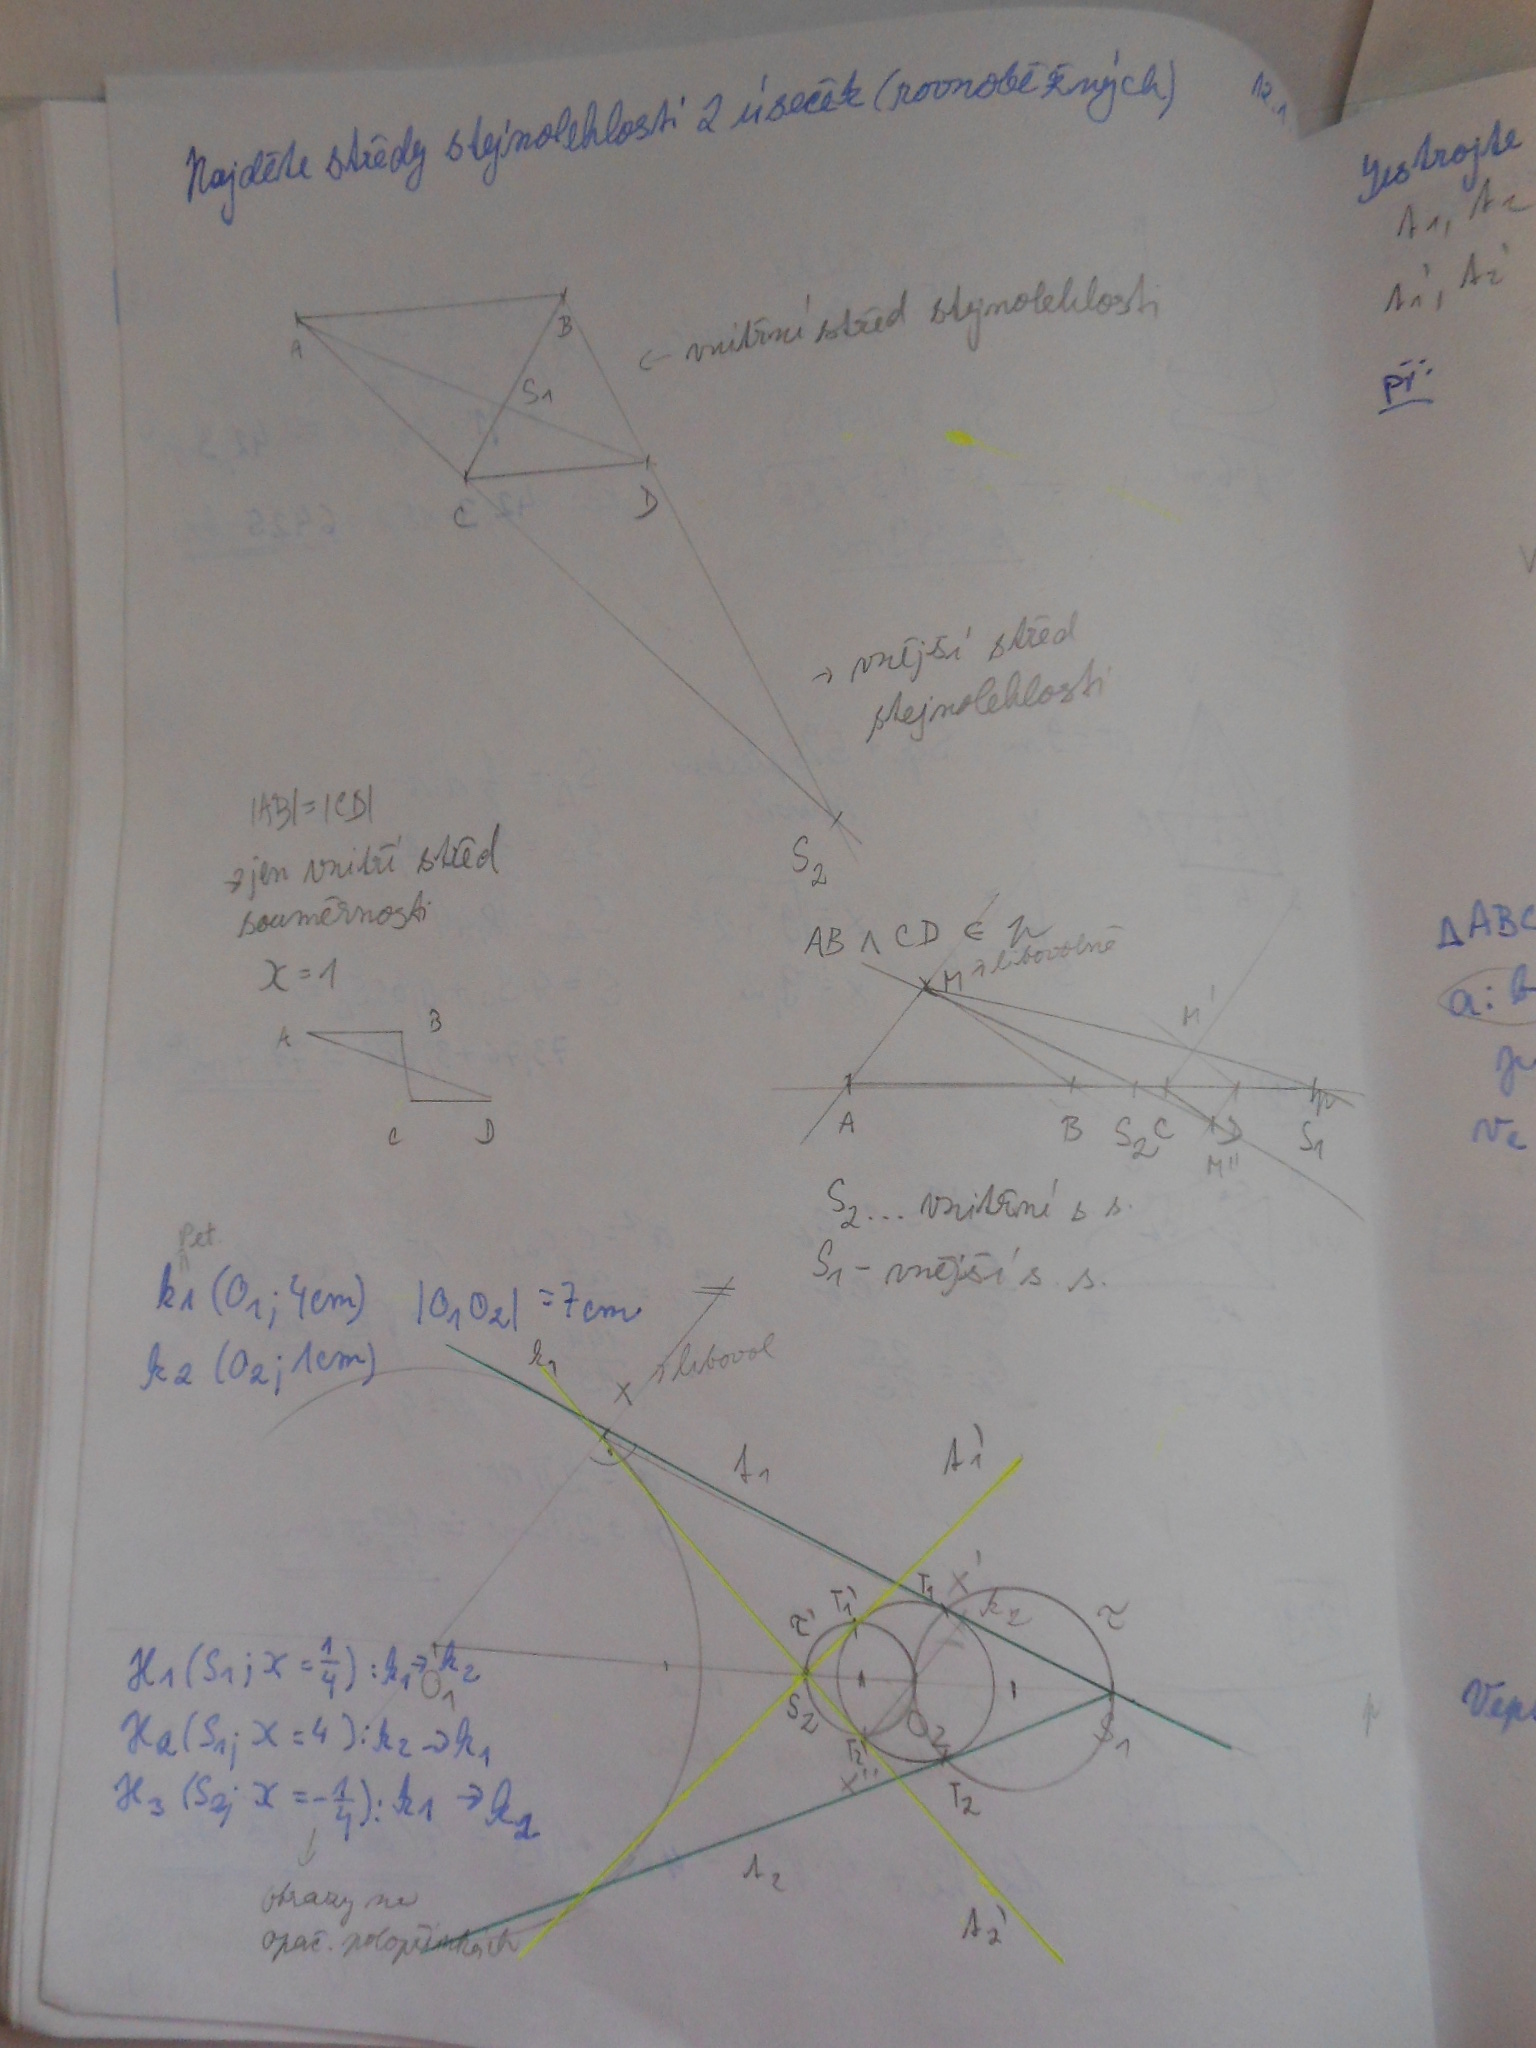 Najděte středy stejnolehlosti 2 úseček (rovnoběžných)
12.1
A
B
← vnitřní střed stejnolehlosti
S1
C
D
→ vnější střed
stejnolehlosti
S2
|AB|=|CD|
→ jen vnitří střed
souměrnosti
X=1
A
B
C
D
AB ∧ CD ∈ p
M → libovolně
M'
A
B
S2
C
D
M''
p
S1
S2... vnitřní s s.
S1 - vnější s. s.
k1 (O1; 4cm) |O1O2| = 7cm
k2 (O2; 1cm)
k1
X
libovol
t1
t1'
T1'
T1
X'
k2
τ
τ'
H1 (S1; X = 1/4): k1 → k2
O1
S2
O2
S1
p
H2 (S1; X = 4): k2 → k1
T2'
X''
T2
H3 (S2; X = -1/4): k1 → k2
t2
obrazy na
opač. polopřímkách
t2'
Vestrojte
t1, t2
t1', t2'
Př:
V
ΔABC
a: b